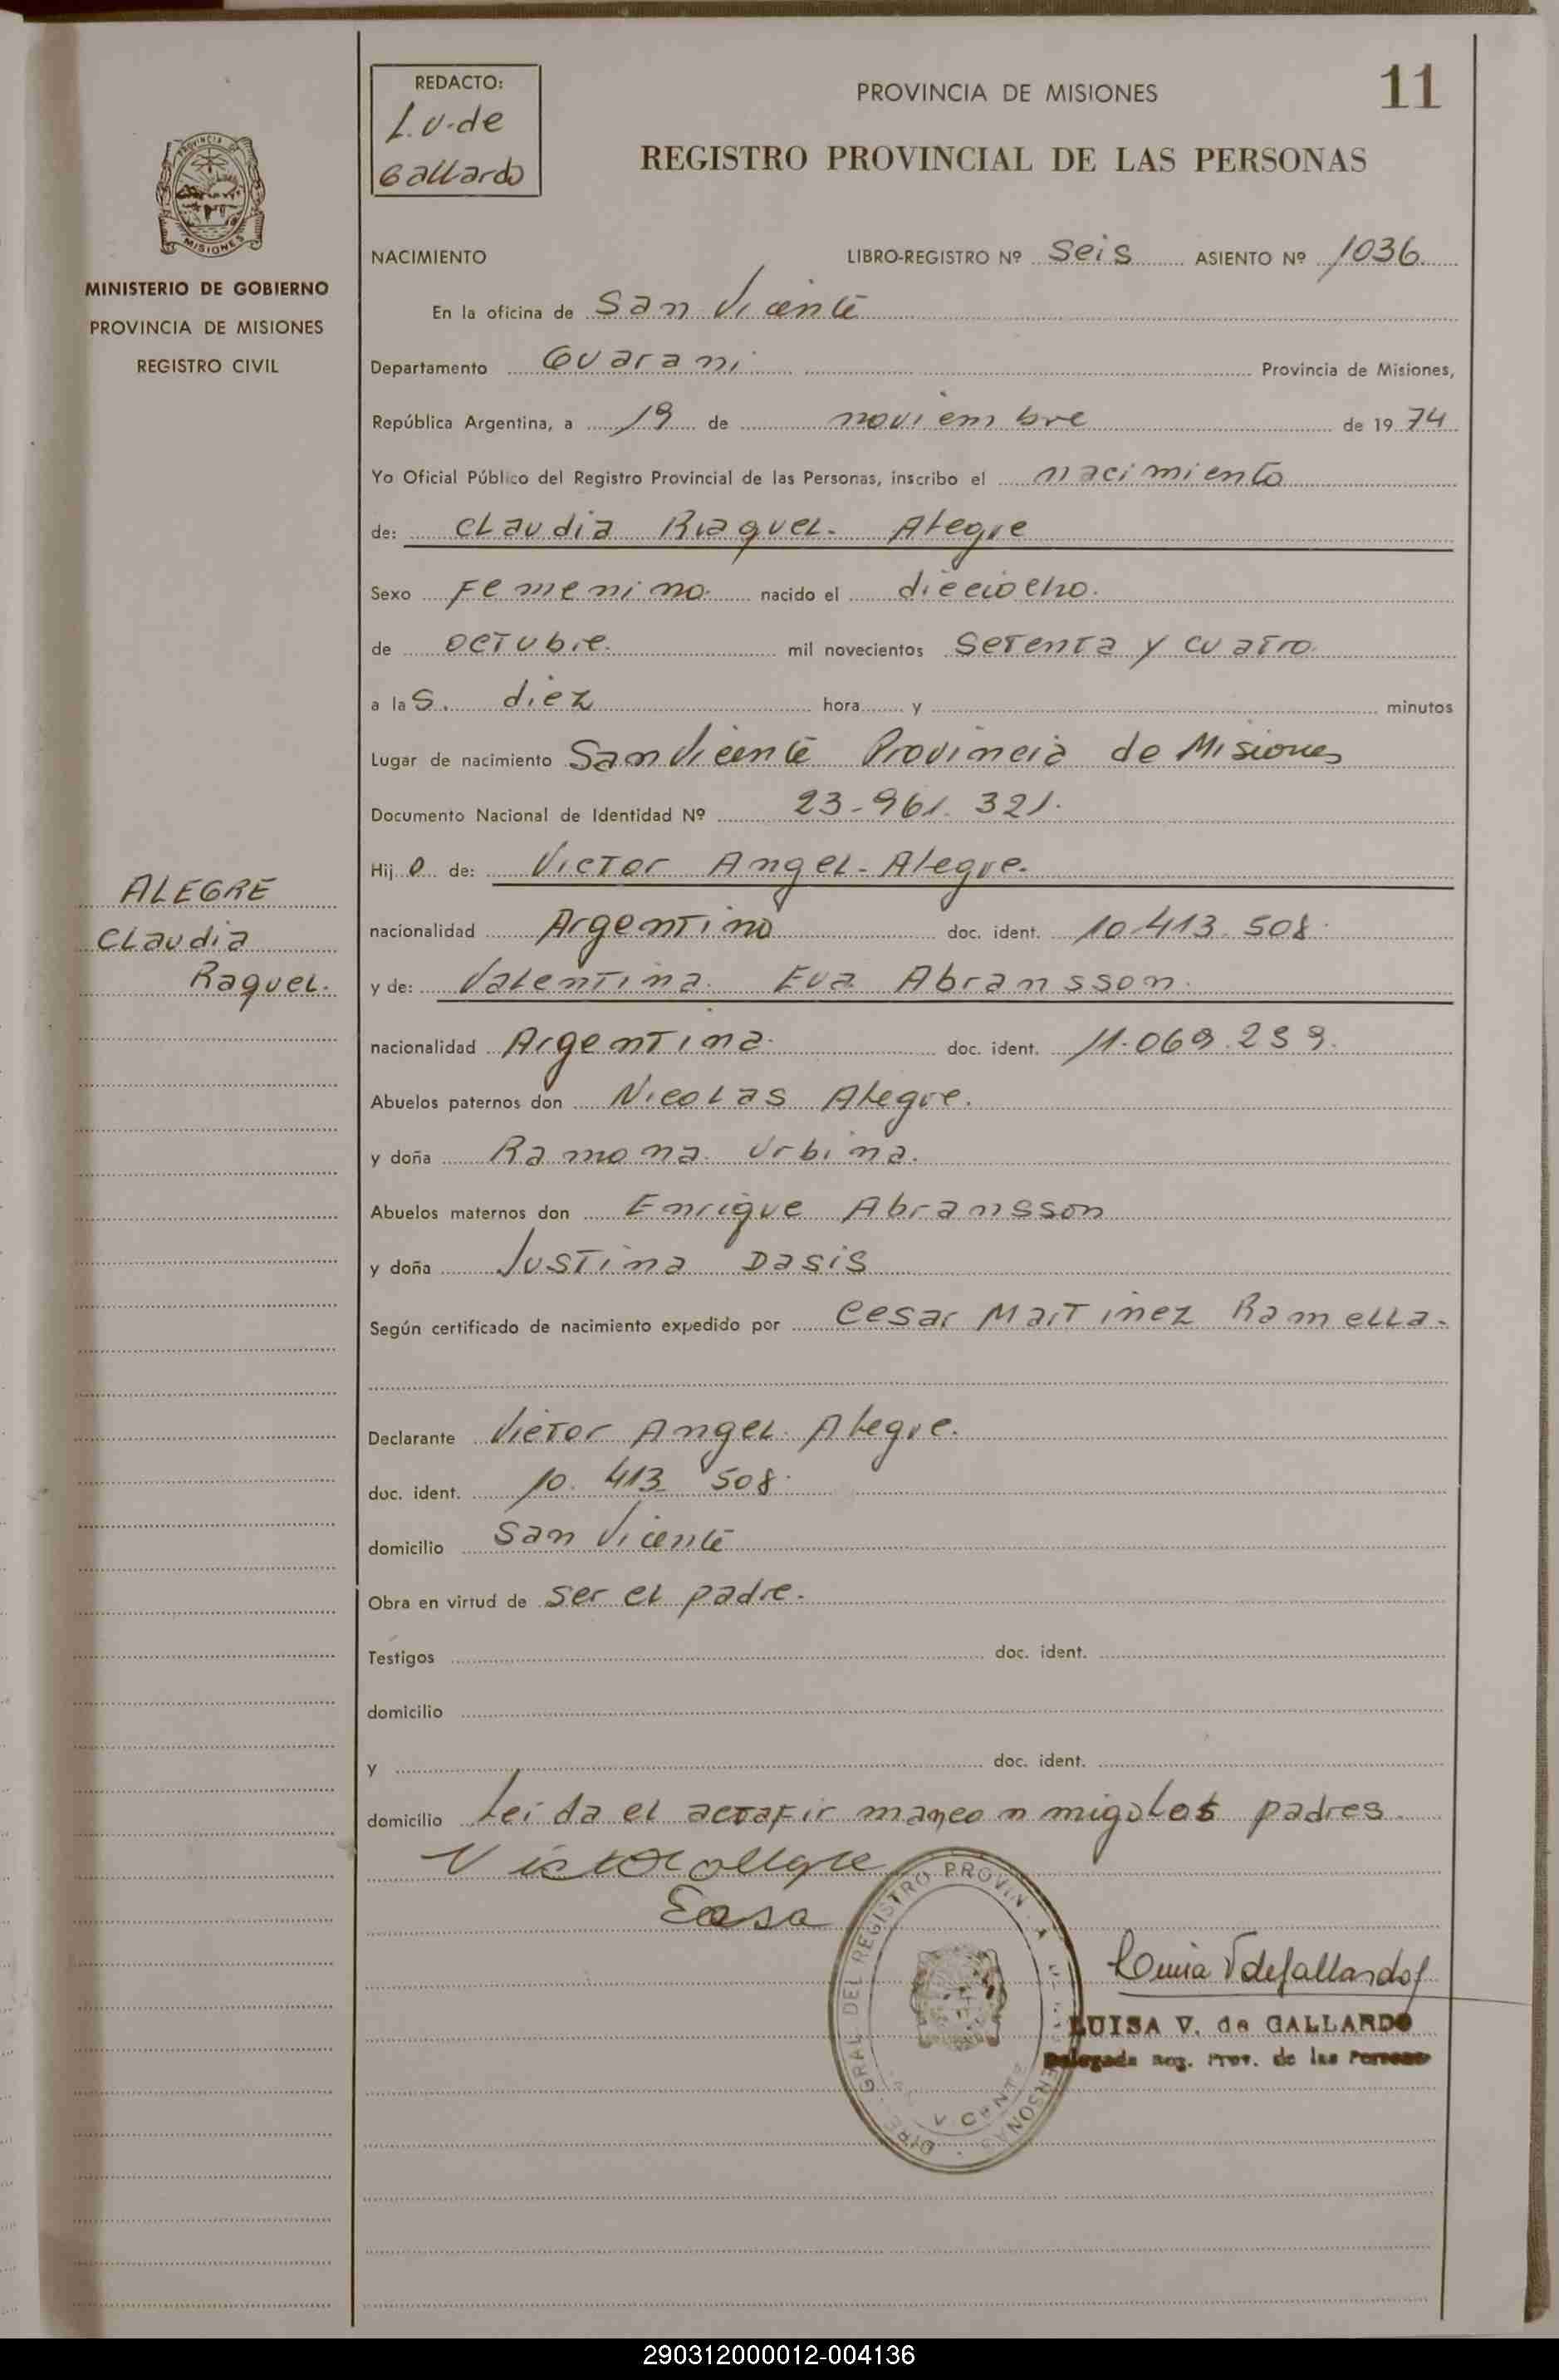 11
REDACTO:
L.V. de
Gallardo
PROVINCIA DE MISIONES
REGISTRO PROVINCIAL DE LAS PERSONAS
PROVINCIA DE
MISIONES
MINISTERIO DE GOBIERNO
PROVINCIA DE MISIONES
REGISTRO CIVIL
NACIMIENTO LIBRO-REGISTRO Nº Seis ASIENTO Nº 1036
En la oficina de San Vicente
Departamento Guarani Provincia de Misiones,
República Argentina, a 19 de noviembre de 1974
Yo Oficial Público del Registro Provincial de las Personas, inscribo el nacimiento
de: Claudia Raquel. Alegre
Sexo Femenino. nacido el dieciocho.
de octubre. mil novecientos setenta y cuatro.
a las. diez hora y minutos
Lugar de nacimiento San Vicente Provincia de Misiones
Documento Nacional de Identidad Nº 23-961.321.
Hijo de: Victor Angel-Alegre.
ALEGRE
Claudia
Raquel.
nacionalidad Argentino doc. ident. 10.413.508.
y de: Valentina. Eva Abransson.
nacionalidad Argentina. doc. ident. 11.069.239.
Abuelos paternos don Nicolas Alegre.
y doña Ramona. Urbina.
Abuelos maternos don Enrique Abransson
y doña Justina Dasis
Según certificado de nacimiento expedido por Cesar Martinez Ramella.
Declarante Victor Angel. Alegre.
doc. ident. 10.413.508.
domicilio San Vicente
Obra en virtud de ser el padre.
Testigos doc. ident.
domicilio
y doc. ident.
domicilio Leida el acta firman conmigo los padres.
Victor allegre
DIRE. GRAL. DEL REGISTRO PROVIN PERSONAS
Luisa V de Gallardo
LUISA V. de GALLARDO
Delegada Reg. Prov. de las Personas
290312000012-004136